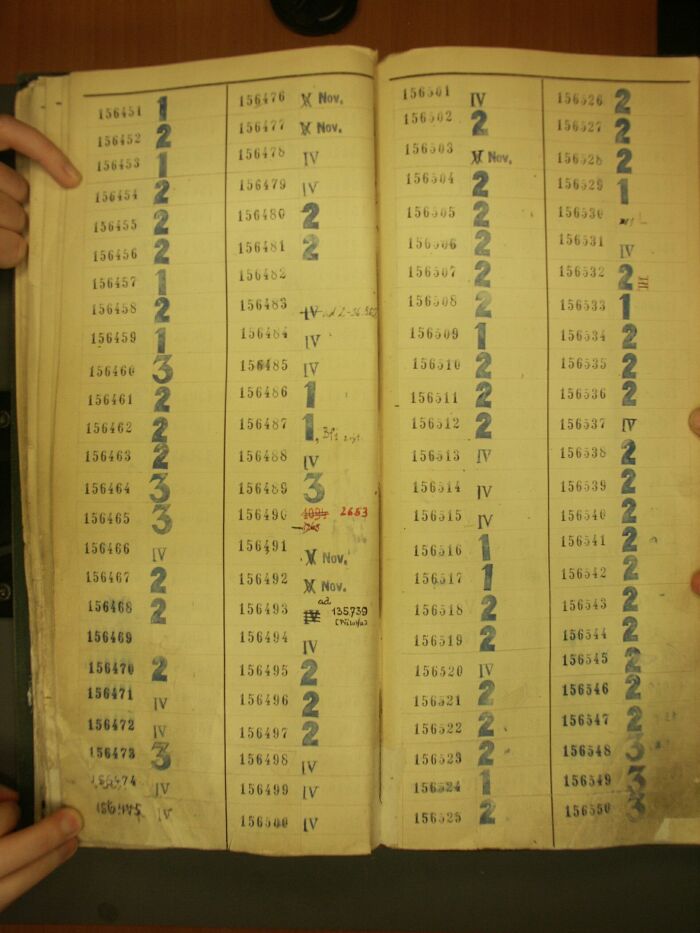 156451 1
156452 2
156453 1
156454 2
156455 2
156456 2
156457 1
156458 2
156459 1
156460 3
156461 2
156462 2
156463 2
156464 3
156465 3
156466 IV
156467 2
156468 2
156469
156470 2
156471 IV
156472 IV
156473 3
156474 IV
IV
156476 X Nov.
156477 X Nov.
156478 IV
156479 IV
156480 2
156481 2
156482
156483 IV
156484 IV
156485 IV
156486 1
156487 1,
156488 IV
156489 3
156490 2663
156491 X Nov.
156492 X Nov.
ad
156493 IV 135,739
156494 IV
156495 2
156496 2
156497 2
156498 IV
156499 IV
156500 IV
156501 IV
156502 2
156503 X Nov.
156504 2
156505 2
156506 2
156507 2
156508 2
156509 1
156510 2
156511 2
156512 2
156513 IV
156514 IV
156515 IV
156516 1
156517 1
156518 2
156519 2
156520 IV
156521 2
156522 2
156523 2
156524 1
156525 2
156526 2
156527 2
156528 2
156529 1
156530
156531 IV
156532 2 III
156533 1
156534 2
156535 2
156536 2
156537 IV
156538 2
156539 2
156540 2
156541 2
156542 2
156543 2
156544 2
156545 2
156546 2
156547 2
156548 3
156549 3
156550 3